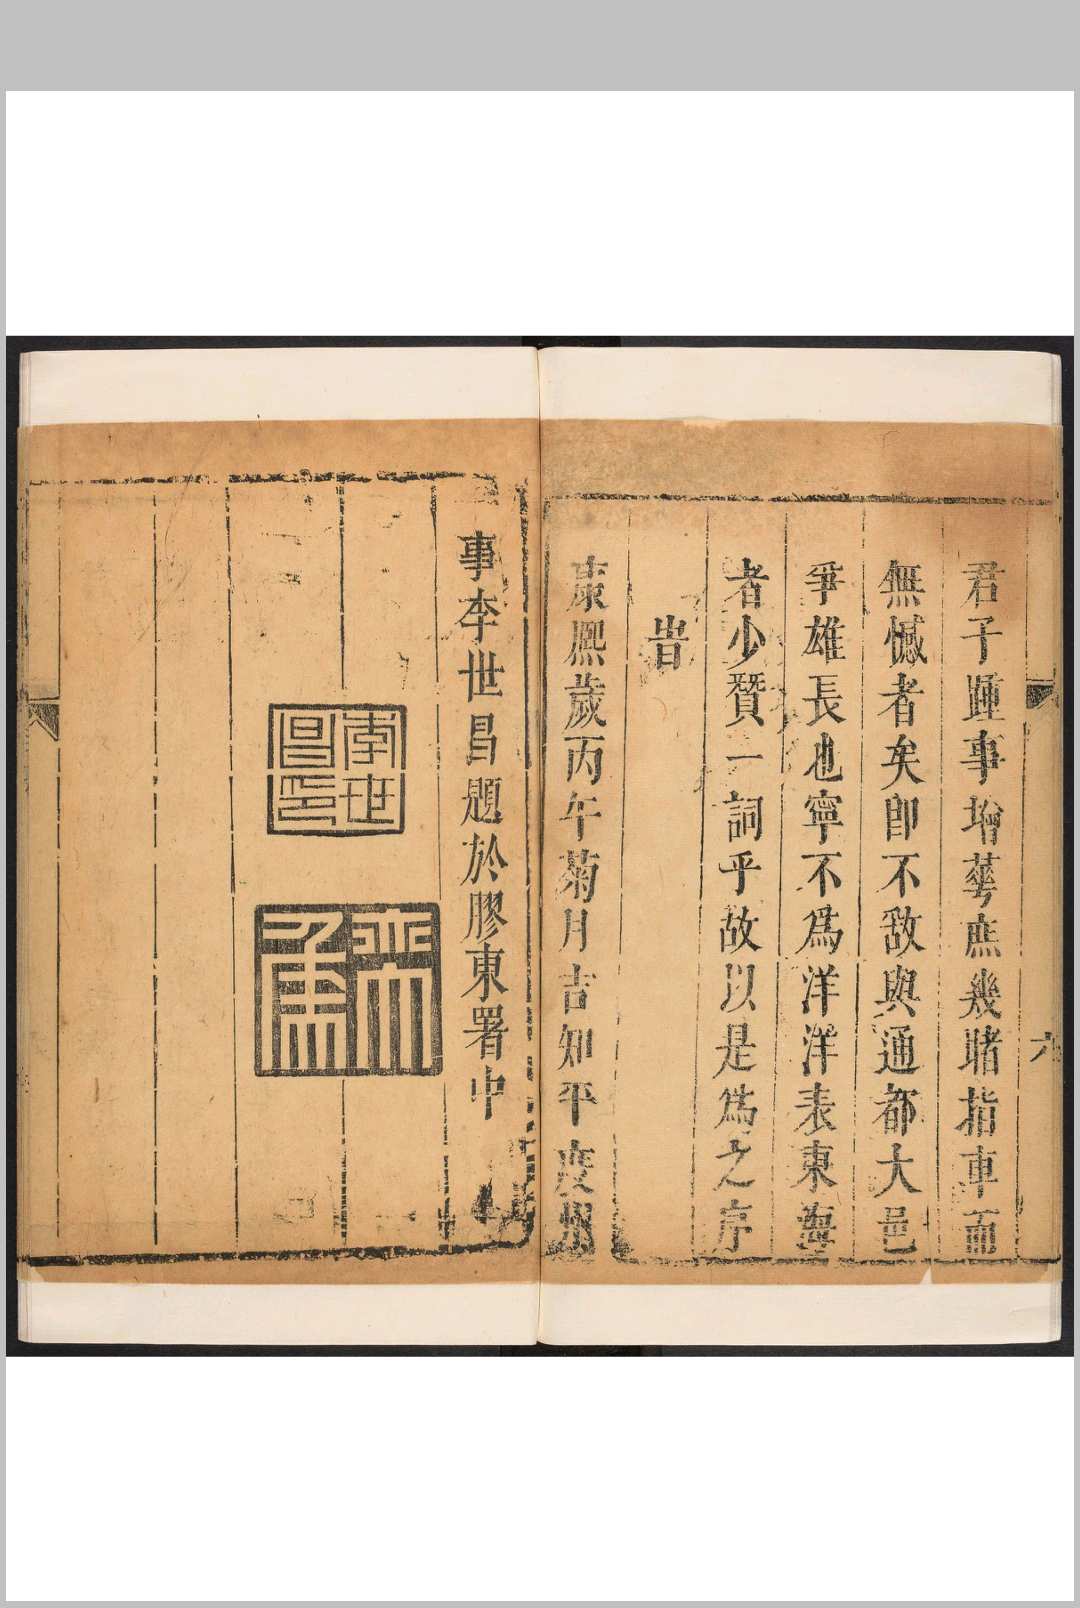 六
君子踵事增華庶幾睹指車而
無憾者矣卽不敢與通都大邑
爭雄長也寧不爲洋洋表東海
者少贊一詞乎故以是爲之序
旹
康熙歲丙午菊月吉知平度州
事李世昌題於膠東署中
李世
昌印